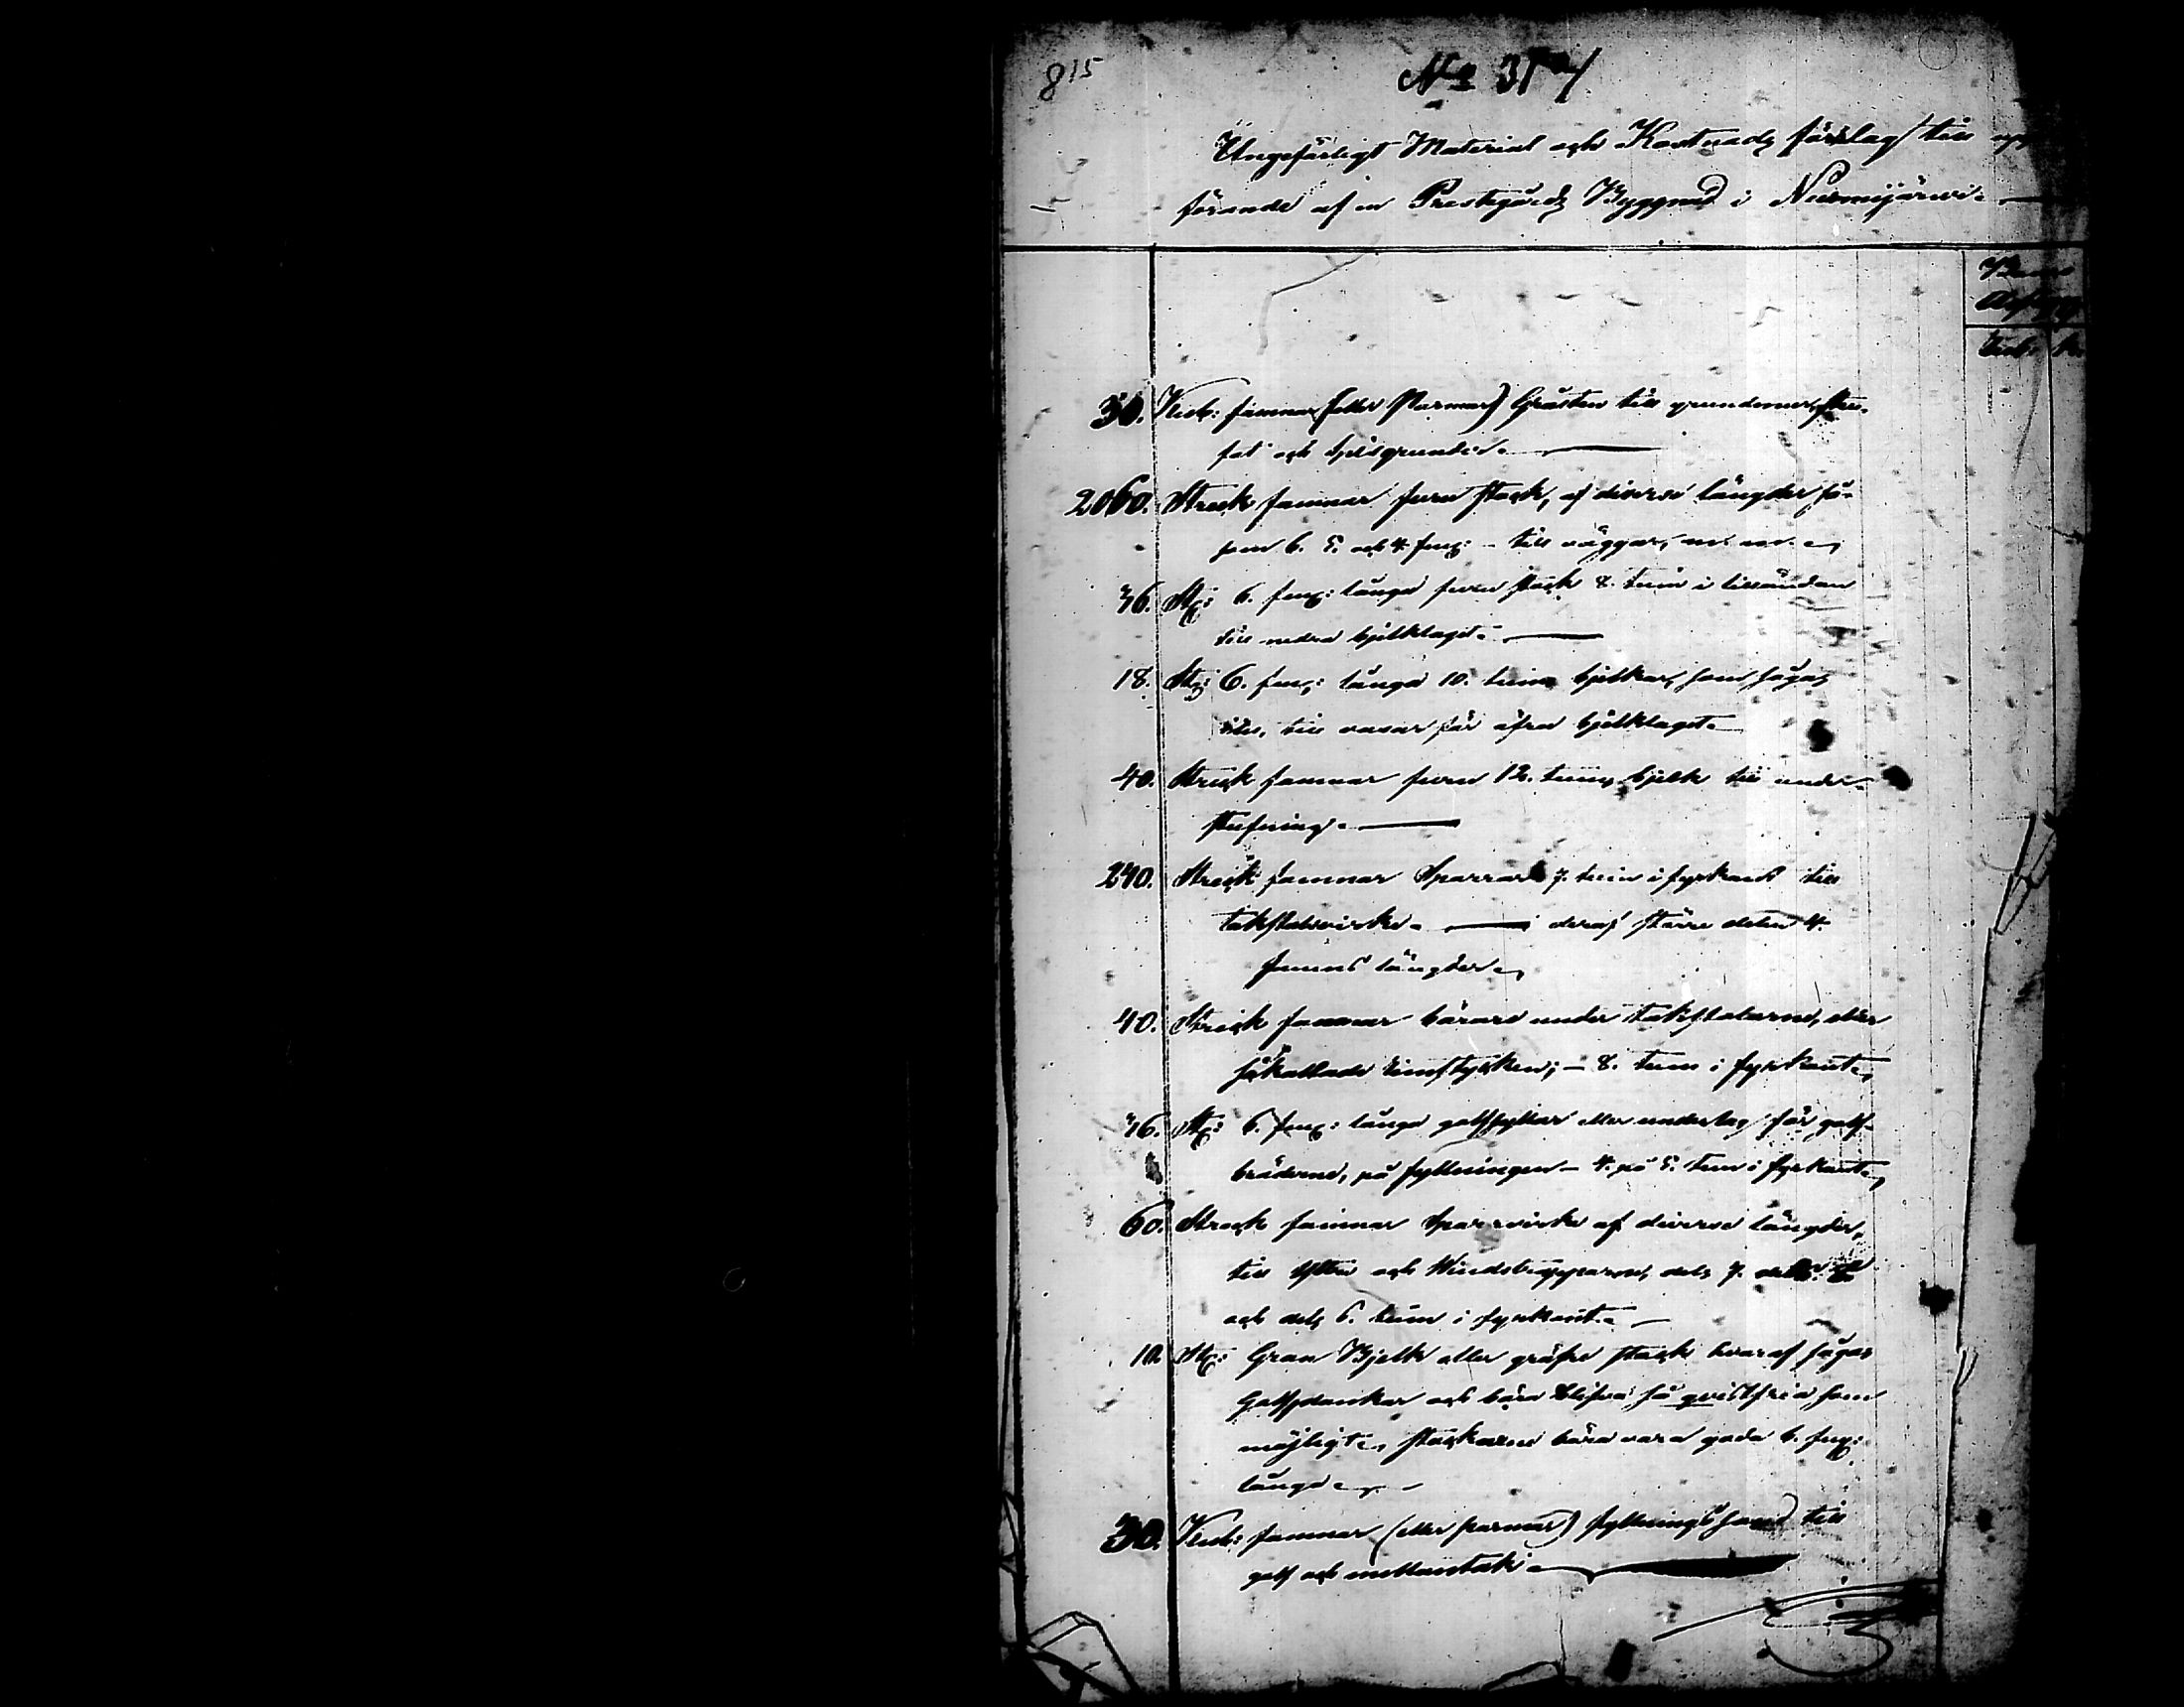 815
No 31
Ungefärligt Material och Kostnads förslag till upp
förande af en Prestgårds Byggnad i Nurmijärvi.
30. Kub: famnar (eller Parmar) Gråsten till grundmur, sten-
fot och spisgrunder.
2060. Streck famnar furu stock, af diverse längder så-
som 6. 5. och 4. fmg: till väggar, m. m.
46. St: 6. fmg: långa furu stock 8. tum i lilländan
till nedra bjelklaget.
18. St: 6. fmg: långa 10. tums bjelkar, som sågas
itu, till vasar för öfra bjelklaget.
40. Streck famnar furu 12. tums bjelk till under-
stufning.
240. Streck famnar Sparrar 7. tum i fyrkant till
takstolsvirke. deraf större delen 4.
famns längder.
40. Streck famnar bärare under takstolarne, eller
såkallade remstycken; 8. tum i fyrkant.
46. St: 6. fmg: långa golfsyllar eller underlag för golf-
bräderne, på fyllningen 4. på 5. tum i fyrkant.
60. Streck famnar Sparrvirke af diverse längder,
till och Windstrapporne, dels 7.
och dels 6. tum i fyrkant.
10. St: Gran Bjelk eller gröfre stock hvaraf sågas
Golfplankor och böra blifva så qvistfria som
möjligt. stockarne böra vara goda 6. fmg:
långa.
30. Kub: famnar (eller parmar) fyllningssand till
golf och mellantak.